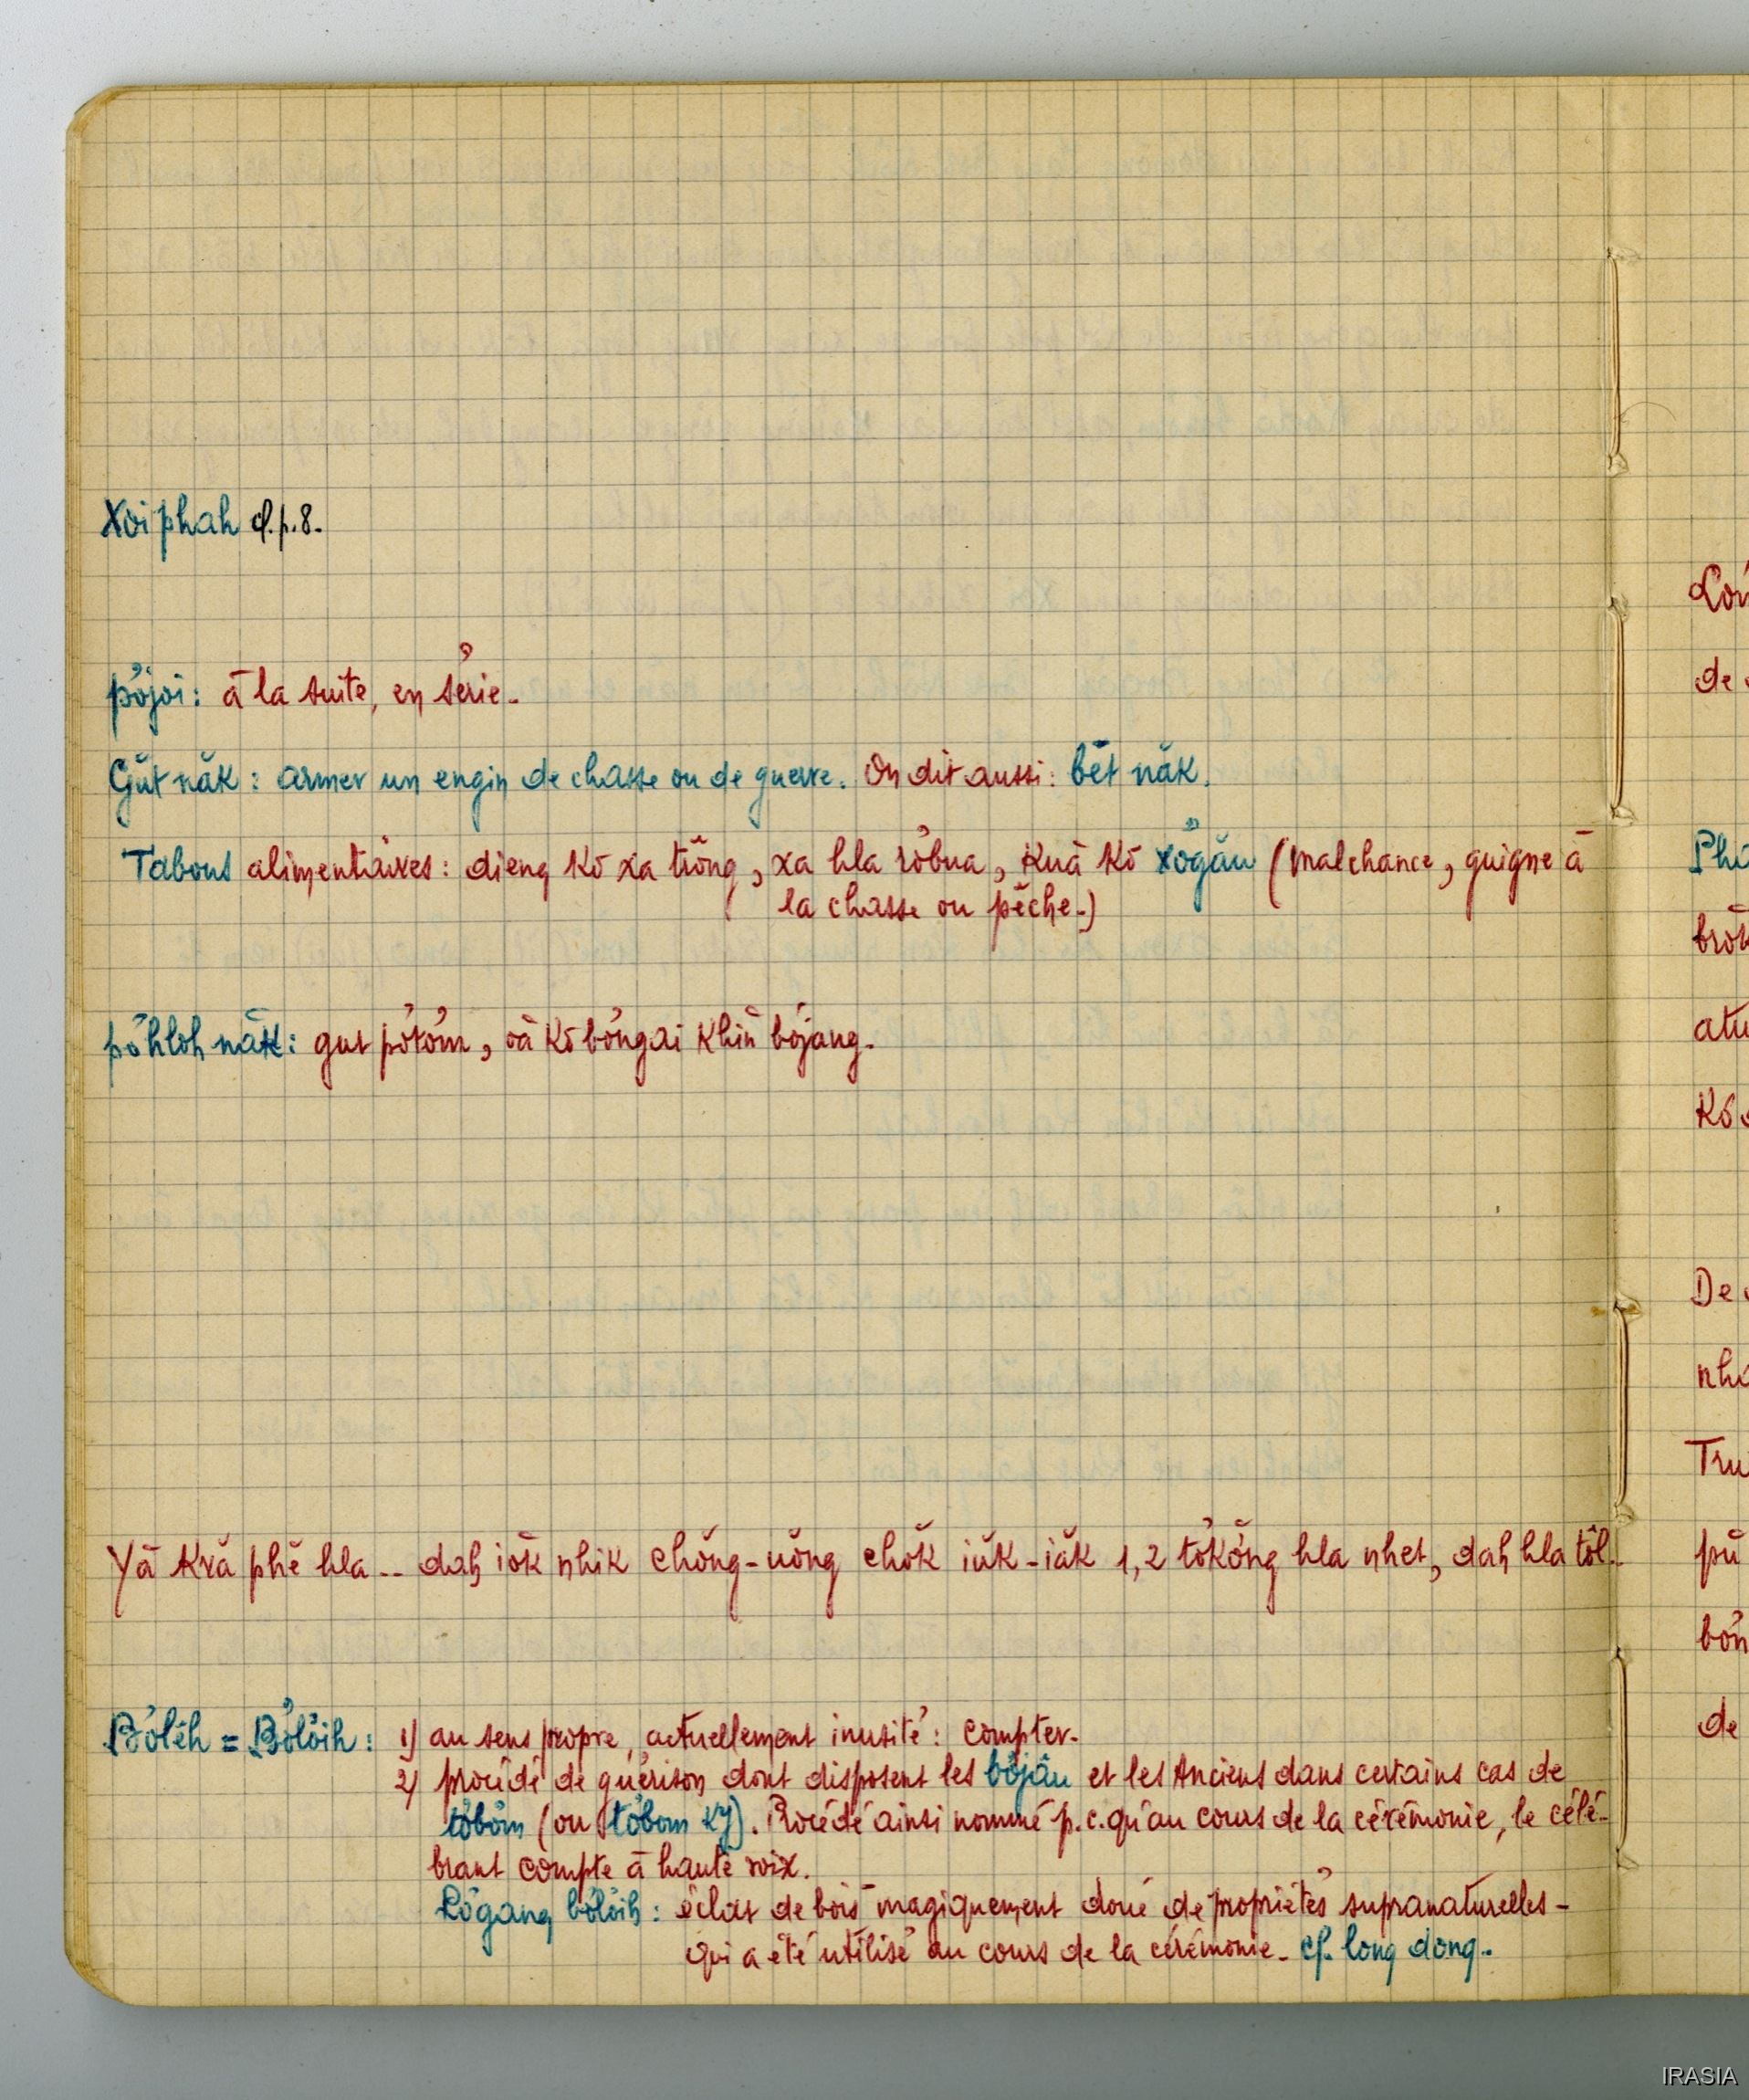 Xoi phah cf. p. 8.
pơ̆joi : à la suite, en série.
Gŭt năk : armer un engin de chasse ou de guerre. On dit aussi : bĕt năk.
Tabous alimentaires : dieng kơ xa trŏng, xa hla rơ̆bua, kuă kơ xơ̆gău (malchance, guigne à
la chasse ou pêche.)
pơ̆hloh năk : gut pơ̆tơ̆m, oă kơ bơ̆ngai khin bơ̆jang.
Yă Kră phĕ hla... dah iŏk nhik chŏng-uŏng chŏk iŭk-iăk 1, 2 tơ̆kŏng hla nhet, dah hla tŏl..
Bơ̆lĕh = Bơ̆lŏih : 1) au sens propre, actuellement inusité : compter.
2) procédé de guérison dont disposent les bơ̆jâu et les Anciens dans certains cas de
tơ̆bơ̆m (ou tơ̆bom Ky). Procédé ainsi nommé p.c. qu'au cours de la cérémonie, le célé-
brant compte à haute voix.
Lơ̆gang bơ̆lŏih : éclat de bois magiquement doué de propriétés supranaturelles -
qui a été utilisé au cours de la cérémonie. cf. long dong..
de
Phă
brŏ
atu
Kơ
De
nhă
Tru
pŭ
bơ̆n
de
IRASIA